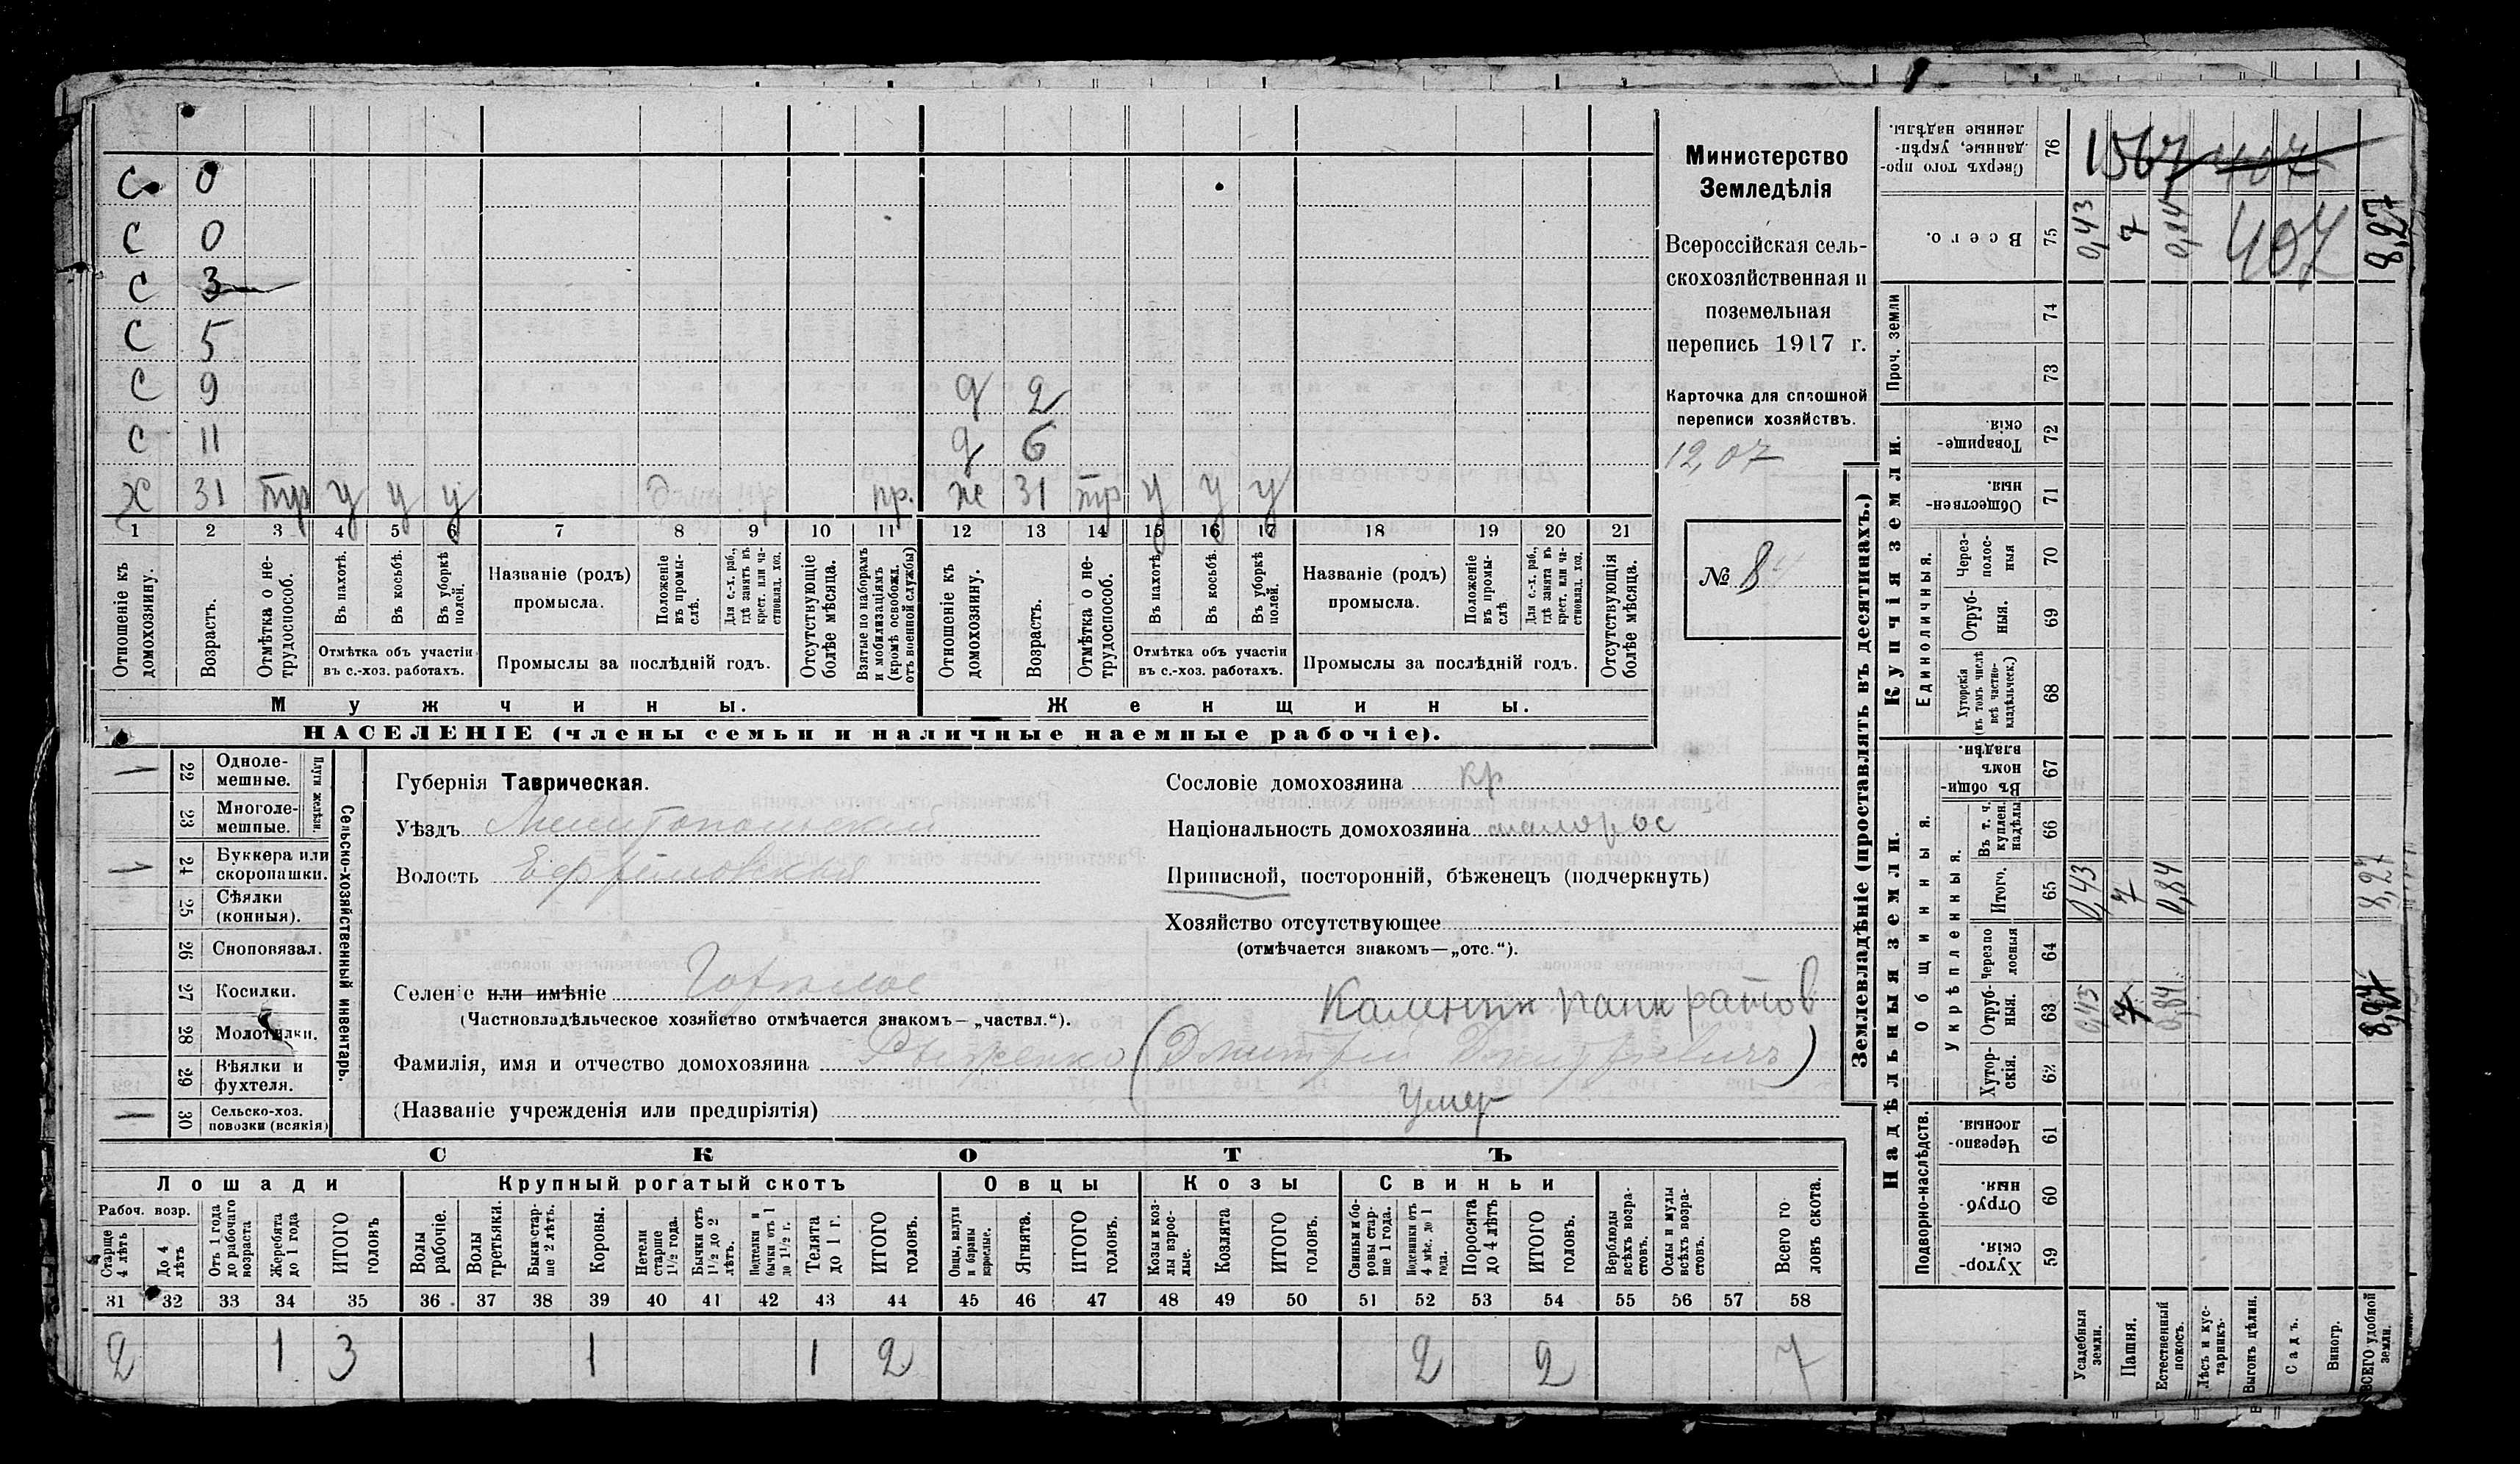 С 0
С 0
С 3
С 5
С 9 д 2
С 11 д 6
Х 31 тр у у у пр. ж 31 тр у у у
1 2 3 4 5 6 7 8 9 10 11 12 13 14 15 16 17 18 19 20 21
Отношеніе къ домохозяину.
Возрастъ.
Отмѣтка о нетрудоспособ.
Въ пахотѣ.
Въ косьбѣ.
Въ уборкѣ полей.
Отмѣтка объ участіи въ с.-хоз. работахъ.
Названіе (родъ) промысла.
Положеніе въ промыслѣ.
Для с.-х. раб., гдѣ занятъ въ крест. или частновлад. хоз.
Промыслы за послѣдній годъ.
Отсутствующіе болѣе мѣсяца.
Взятые по наборамъ и мобилизаціямъ (кромѣ освобожд. отъ военной службы)
Отношеніе къ домохозяину.
Возрастъ.
Отмѣтка о нетрудоспособ.
Въ пахотѣ.
Въ косьбѣ.
Въ уборкѣ полей.
Отмѣтка объ участіи въ с.-хоз. работахъ.
Названіе (родъ) промысла.
Положеніе въ промыслѣ
Для с.-х. раб., гдѣ занята въ крест. или частновлад. хоз.
Промыслы за послѣдній годъ.
Отсутствующія болѣе мѣсяца.
Мужчины.
Женщины.
НАСЕЛЕНІЕ (члены семьи и наличные наемные рабочіе).
Министерство
Земледѣлія
Всероссійская сель-
скохозяйственная и
поземельная
перепись 1917 г.
Карточка для сплошной
переписи хозяйствъ.
12,07
№ 8
22 Одноле-
мешные.
23 Многоле-
мешные.
Плуги желѣзн.
24 Буккера или
скоропашки.
25 Сѣялки
(конныя).
26 Сноповязал.
27 Косилки.
28 Молотилки.
29 Вѣялки и
фухтеля.
30 Сельско-хоз.
повозки (всякія)
Сельско-хозяйственный инвентарь.
Губернія Таврическая.
Уѣздъ Мелитопольскій
Волость Ефремовская
Селеніе или имѣніе
(Частновладѣльческое хозяйство отмѣчается знакомъ—„частвл.“).
Фамилія, имя и отчество домохозяина Рыженко (Дмитрій Дмитріевичъ)
(Названіе учрежденія или предпріятія) Умер
Сословіе домохозяина кр
Національность домохозяина малорос
Приписной, посторонній, бѣженецъ (подчеркнуть)
Хозяйство отсутствующее
(отмѣчается знакомъ—„отс.“).
Каленик Панкратов
СКОТЪ
Лошади
Рабоч. возр.
Старше 4 лѣтъ
До 4 лѣтъ
Отъ 1 года до рабочаго возраста
Жеребята до 1 года
ИТОГО головъ
Крупный рогатый скотъ
Волы рабочіе.
Волы третьяки.
Быки старше 2 лѣтъ.
Коровы.
Нетели старше 1½ года.
Бычки отъ 1½ до 2 лѣтъ.
Подтелки и бычки отъ 1 до 1½ г.
Телята до 1 г.
ИТОГО головъ.
Овцы
Овцы, валухи и бараны взрослые.
Ягнята.
ИТОГО головъ.
Козы
Козы и козлы взрослые.
Козлята
ИТОГО головъ.
Свиньи
Свиньи и боровы старше 1 года.
Подсвинки отъ 4 мѣс. до 1 года.
Поросята до 4 лѣтъ
ИТОГО головъ.
Верблюды всѣхъ возрастовъ.
Ослы и мулы всѣхъ возрастовъ.
Всего головъ скота.
31 32 33 34 35 36 37 38 39 40 41 42 43 44 45 46 47 48 49 50 51 52 53 54 55 56 57 58
2 1 3 1 1 2 2 2 7
Землевладѣніе (проставлять въ десятинахъ.)
Сверхъ того проданные, укрѣпленные надѣлы. 76 1567 407
Всего. 75 0,43 7 0,84 407 8,27
Проч. земли
74
73
Купчія земли.
Товарищескія. 72
Общественныя. 71
Единоличныя.
Черезполосныя 70
Отрубныя. 69
Хуторскія (въ томъ числѣ всѣ частновладѣльческ.) 68
Надѣльныя земли.
Общинныя.
Въ общинномъ владѣн. 67
Укрѣпленныя.
Въ т. ч. куплен. надѣлы 66
Итого. 65 0,43 7 0,84 8,27
Черезполосныя 64
Отрубныя. 63 0,43 7 0,84 8,27
Хуторскія. 62
Подворно-наслѣдств.
Черезполосныя. 61
Отрубныя. 60
Хуторскія. 59
Усадебныя земли.
Пашня.
Естественный покосъ.
Лѣсъ и кустарникъ.
Выгонъ цѣлин.
Садъ.
Виногр.
ВСЕГО удобной земли.